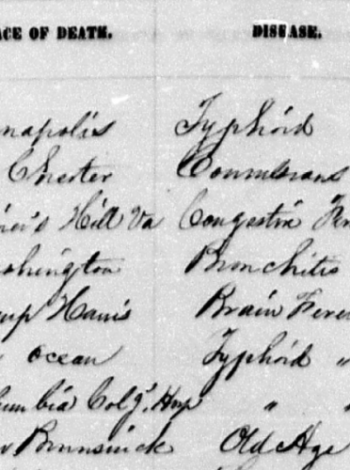 ACE OF DEATH. DISEASE.
napolis Typhoid
Chester Convulsions
Hill Va Congestiv Fe
shington Bronchitis
Brain Feve
ocean Typhoid "
umbia Colg. Hosp " "
Brunswick Old Age